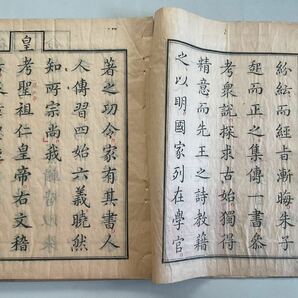 紛紜而經旨漸晦朱子
起而正之集傳一書叅
考衆說探求古始獨得
精意而先王之詩教藉
之以明國家列在學官
著之功令家有其書人
人傳習四始六義曉然
知所宗尚我
皇考聖祖仁皇帝右文稽